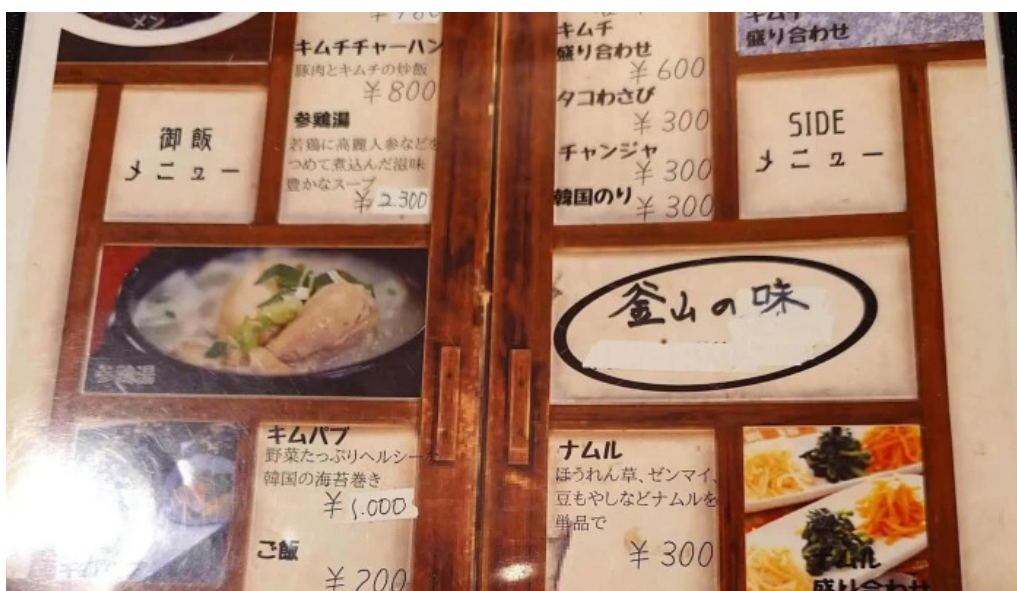 メン
御飯
メニュー
キムチチャーハン
豚肉とキムチの炒飯
¥800
参鶏湯
若鶏に高麗人参などを
つめて煮込んだ滋味
豊かなスープ
¥2.300
参鶏湯
キムパブ
野菜たっぷりヘルシーな
韓国の海苔巻き
¥1.000
ご飯
¥200
キムチ
盛り合わせ
¥600
タコわさび
¥300
チャンジャ
¥300
韓国のり
¥300
キムチ
盛り合わせ
SIDE
メニュー
釜山の味
ナムル
ほうれん草、ゼンマイ、
豆もやしなどナムルを
単品で
¥300
ナムル
盛り合わせ